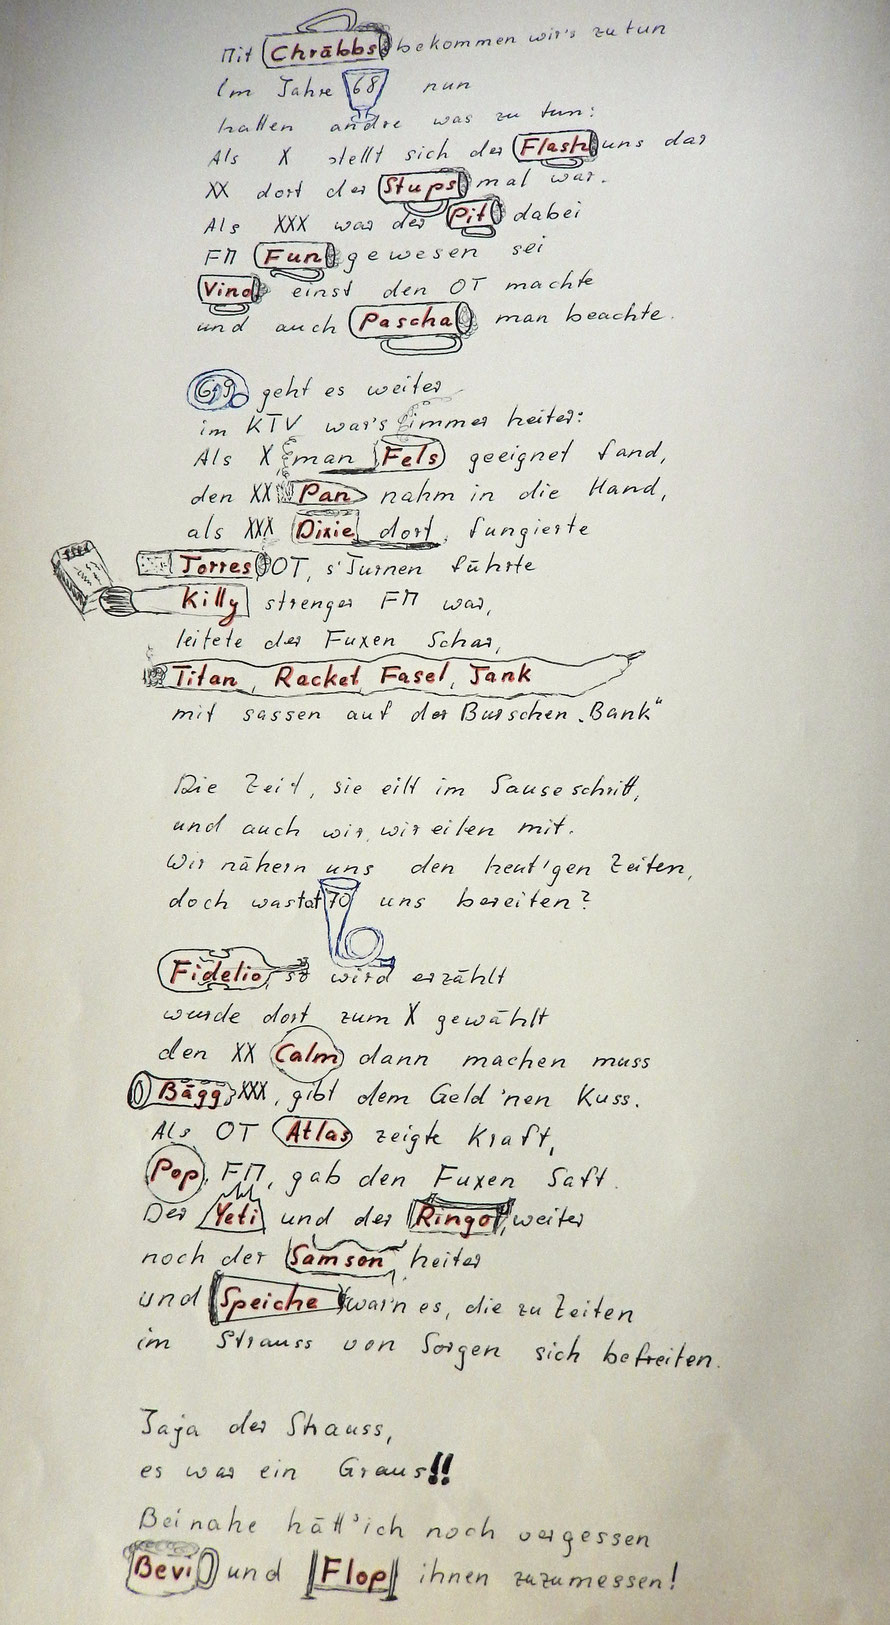 Mit Chräbbs bekommen wir's zu tun
Im Jahre 68 nun
hatten andre was zu tun:
Als X stellt sich der Flash uns dar
XX dort der Stups mal war.
Als XXX war der Pit dabei
FM Fun gewesen sei
Vino einst den OT machte
und auch Pascha man beachte.
69 geht es weiter
im KTV war's immer heiter:
Als X man Fels geeignet fand,
den XX Pan nahm in die Hand,
als XXX Dixie dort fungierte
Torres OT, s'Turnen führte
Killy strenger FM war,
leitete der Fuxen Schar,
Titan, Racket, Fasel, Tank
mit sassen auf der Burschen „Bank"
Die Zeit, sie eilt im Sauseschritt,
und auch wir, wir eilen mit.
Wir nähern uns den heut'gen Zeiten,
doch was tat 70 uns bereiten?
Fidelio, so wird erzählt
wurde dort zum X gewählt
den XX Calm dann machen muss
Bägg XXX, gibt dem Geld 'nen Kuss.
Als OT Atlas zeigte Kraft,
Pop, FM, gab den Fuxen Saft.
Der Yeti und der Ringo, weiter
noch der Samson heiter
und Speiche war'n es, die zu Zeiten
im Strauss von Sorgen sich befreiten.
Jaja der Strauss,
es war ein Graus!!
Beinahe hätt' ich noch vergessen
Bevi und Flop ihnen zuzumessen!